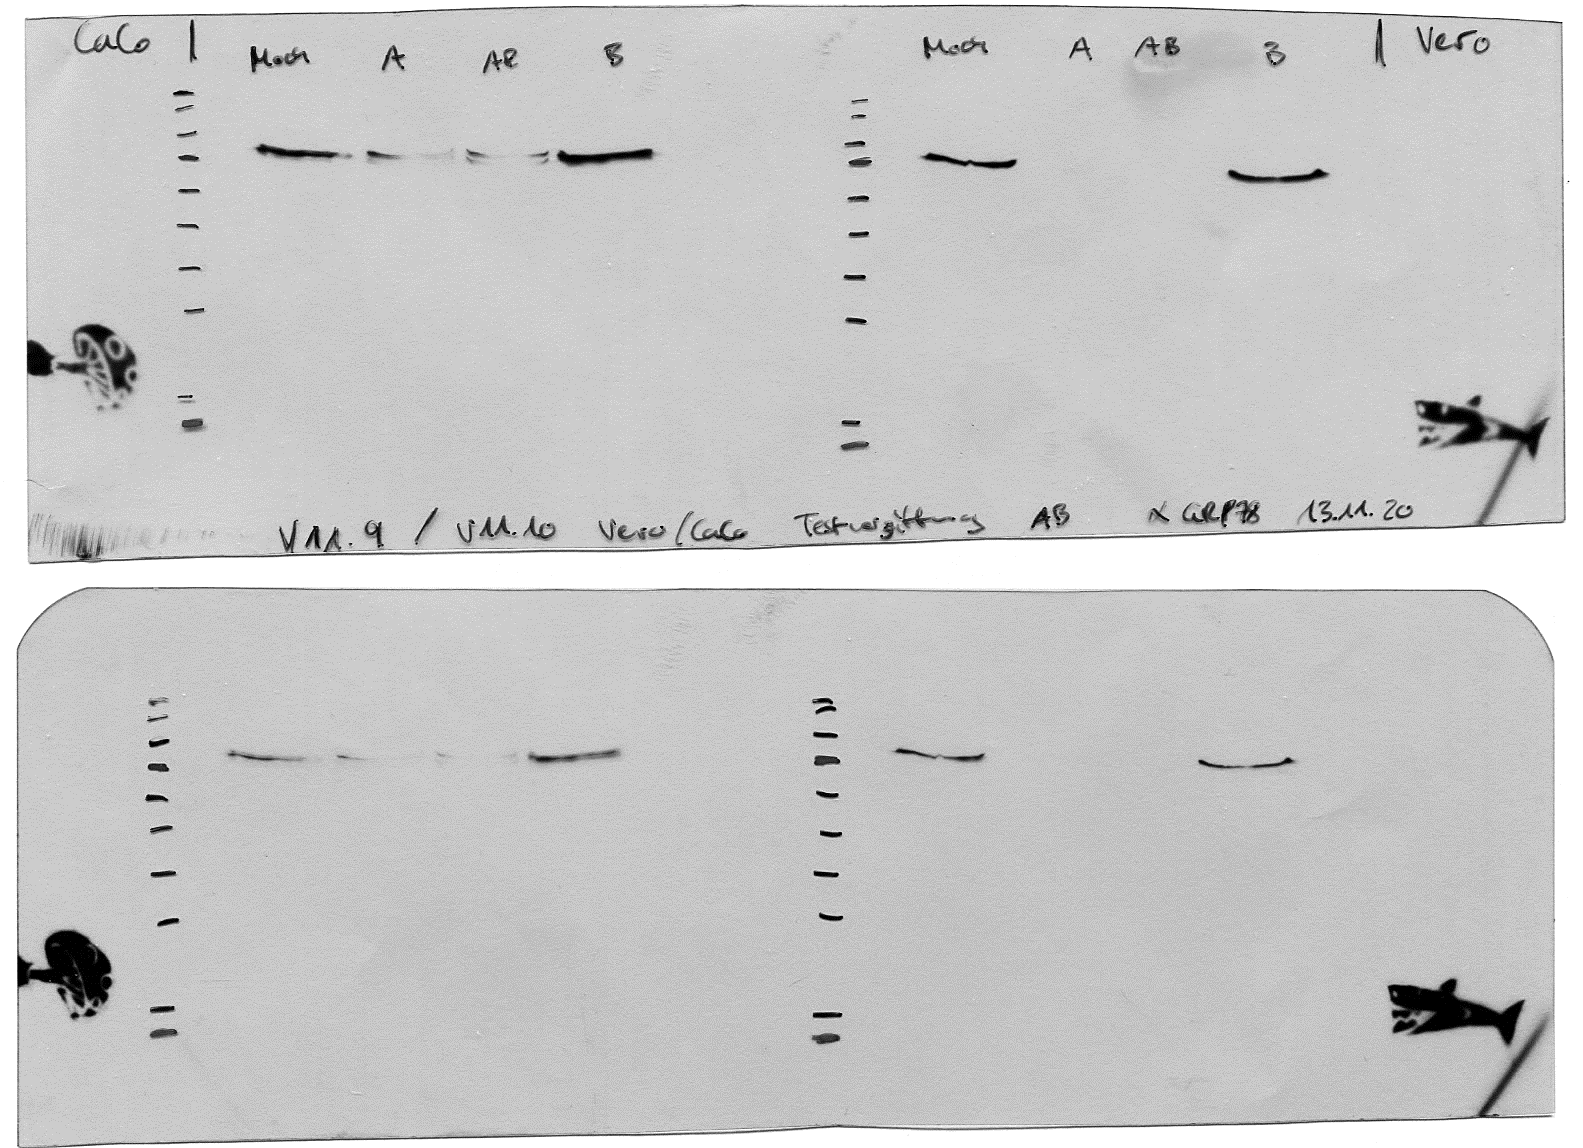 CaCo | Mock A AB B Mock A AB B | Vero
V11.9 / V11.10 Vero/CaCo Testvergiftung AB α GRP78 13.11.20